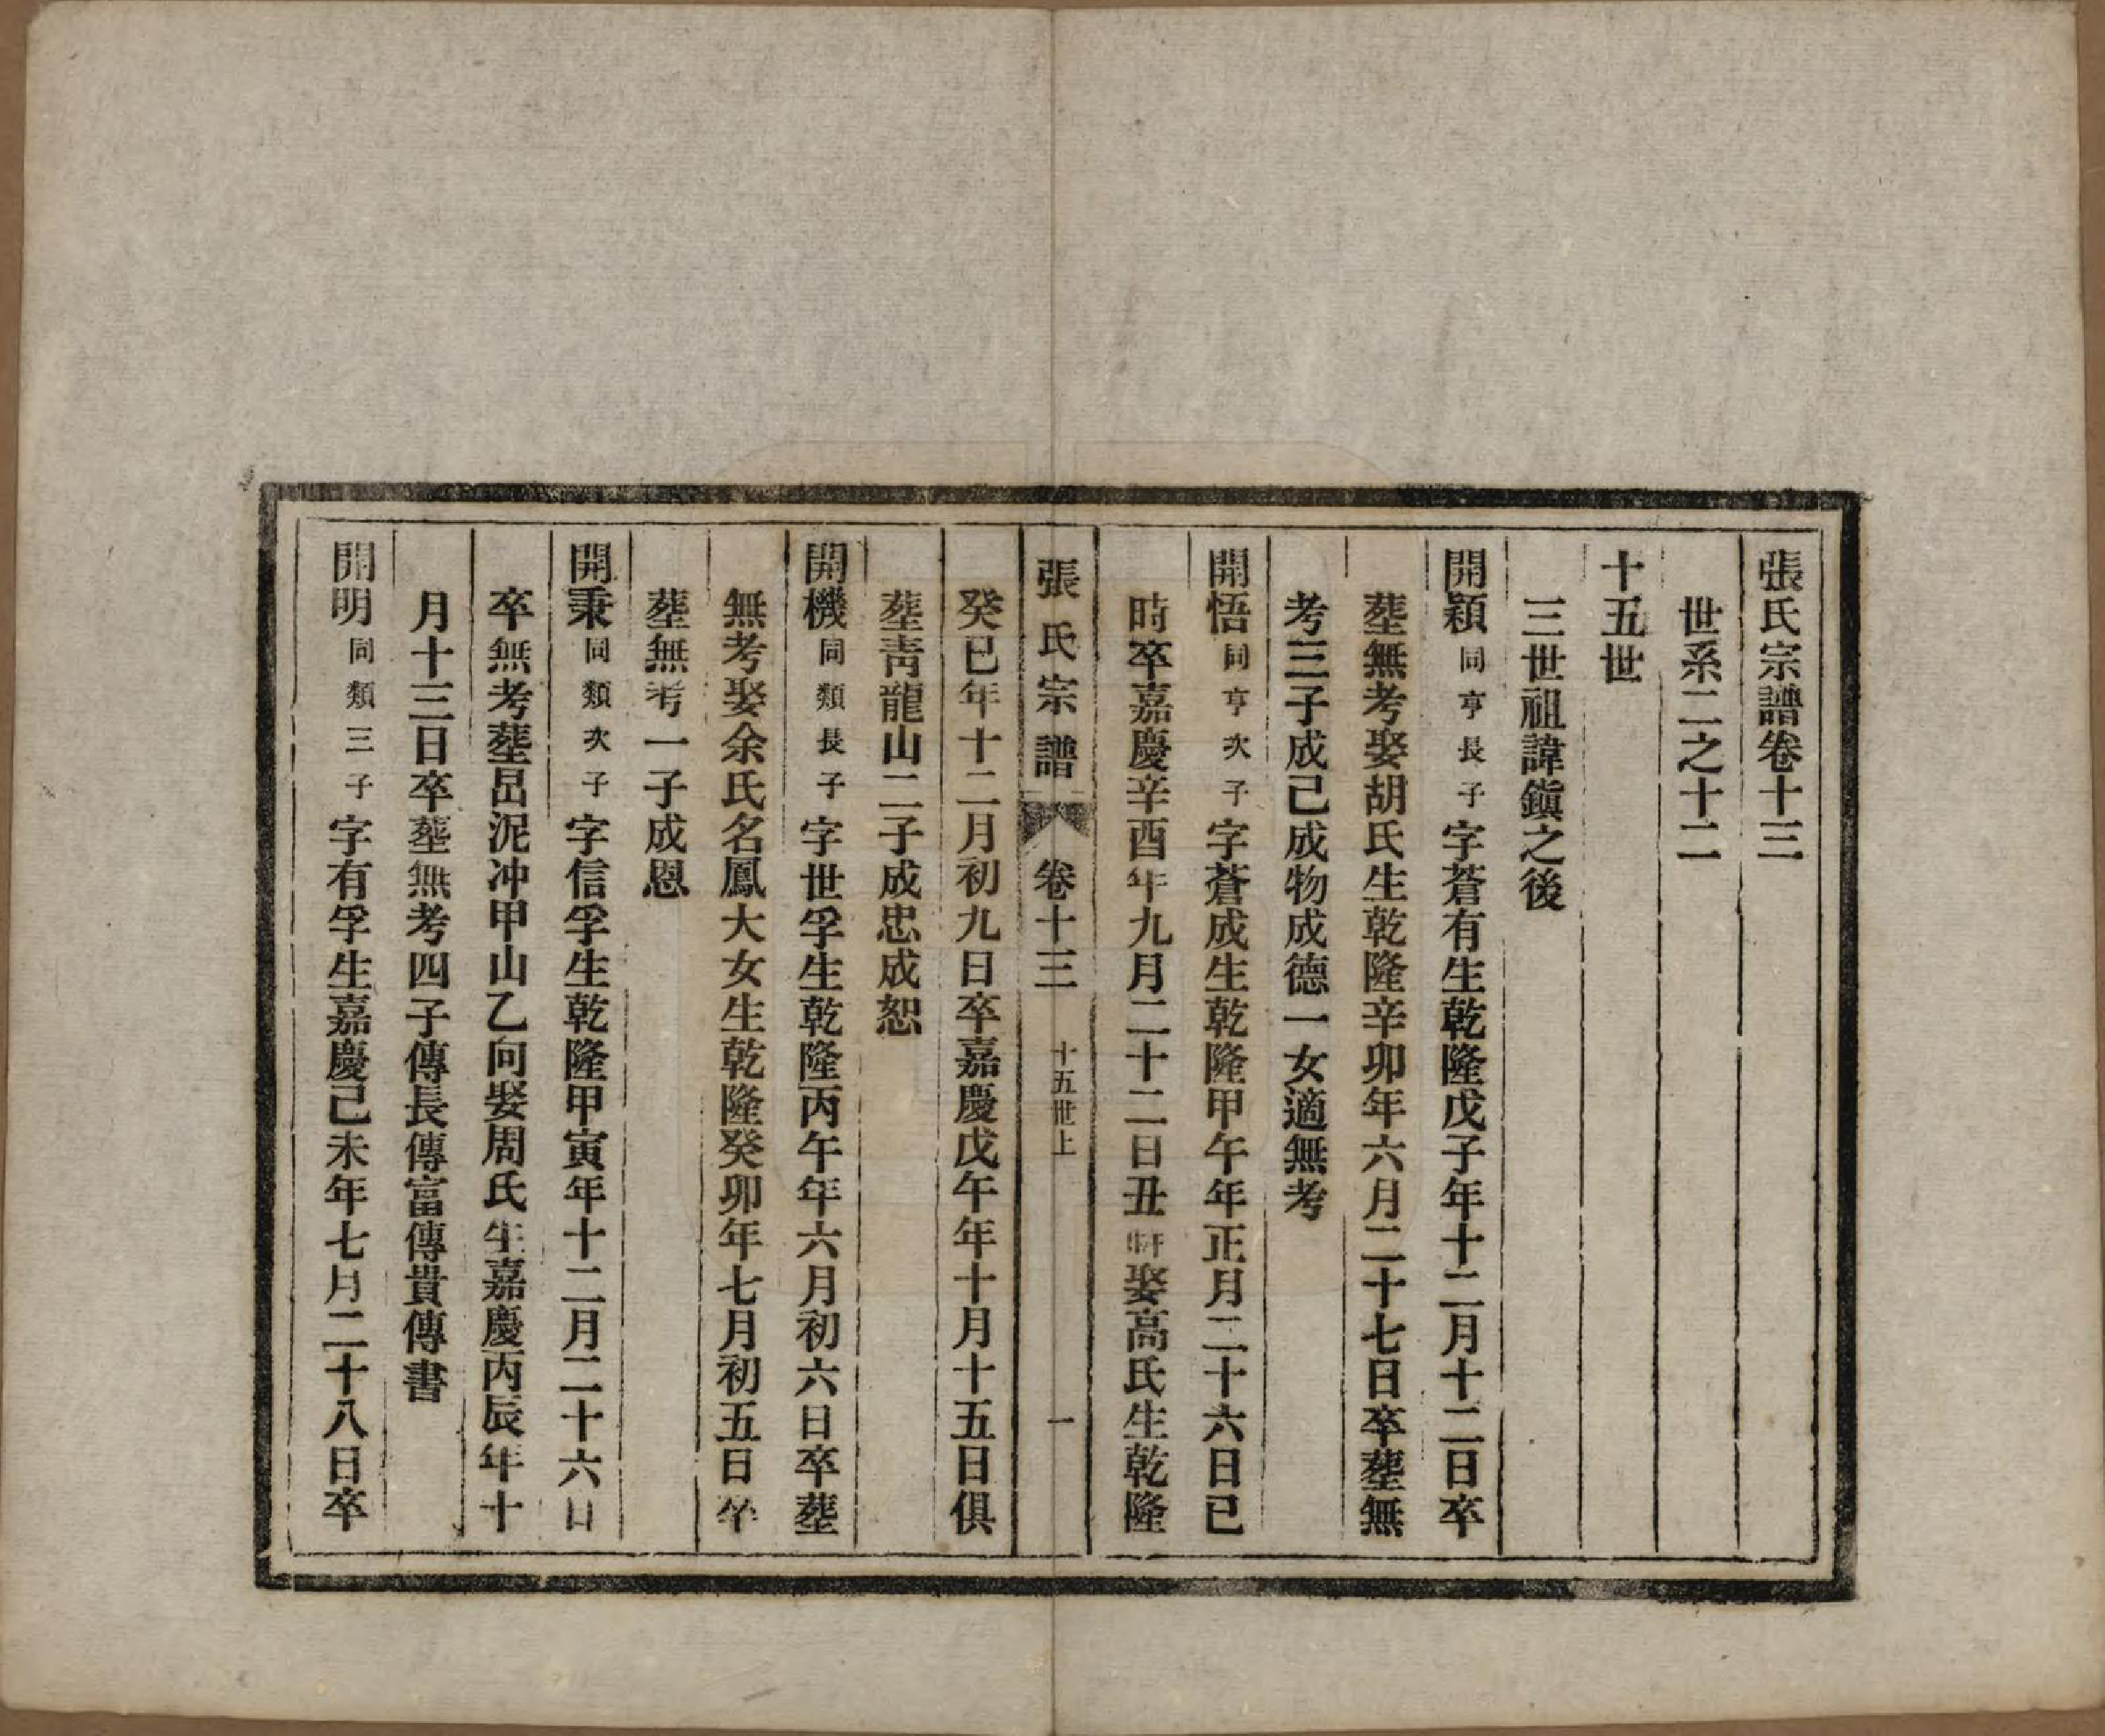 張氏宗譜卷十三
世系二之十二
十五世
三世祖諱鎭之後
開穎同亨長子字蒼有生乾隆戊子年十二月十二日卒
塟無考娶胡氏生乾隆辛卯年六月二十七日卒塟無
考三子成己成物成德一女適無考
開悟同亨次子字蒼成生乾隆甲午年正月二十六日巳
時卒嘉慶辛酉年九月二十二日丑時娶高氏生乾隆
張氏宗譜 卷十三 十五世上 一
癸巳年十二月初九日卒嘉慶戊午年十月十五日俱
塟靑龍山二子成忠成恕
開機同類長子字世孚生乾隆丙午年六月初六日卒塟
無考娶余氏名鳳大女生乾隆癸卯年七月初五日卒
塟無考一子成恩
開秉同類次子字信孚生乾隆甲寅年十二月二十六日
卒無考塟呂泥冲甲山乙向娶周氏生嘉慶丙辰年十
月十三日卒塟無考四子傳長傳富傳貴傳書
開明同類三子字有孚生嘉慶己未年七月二十八日卒